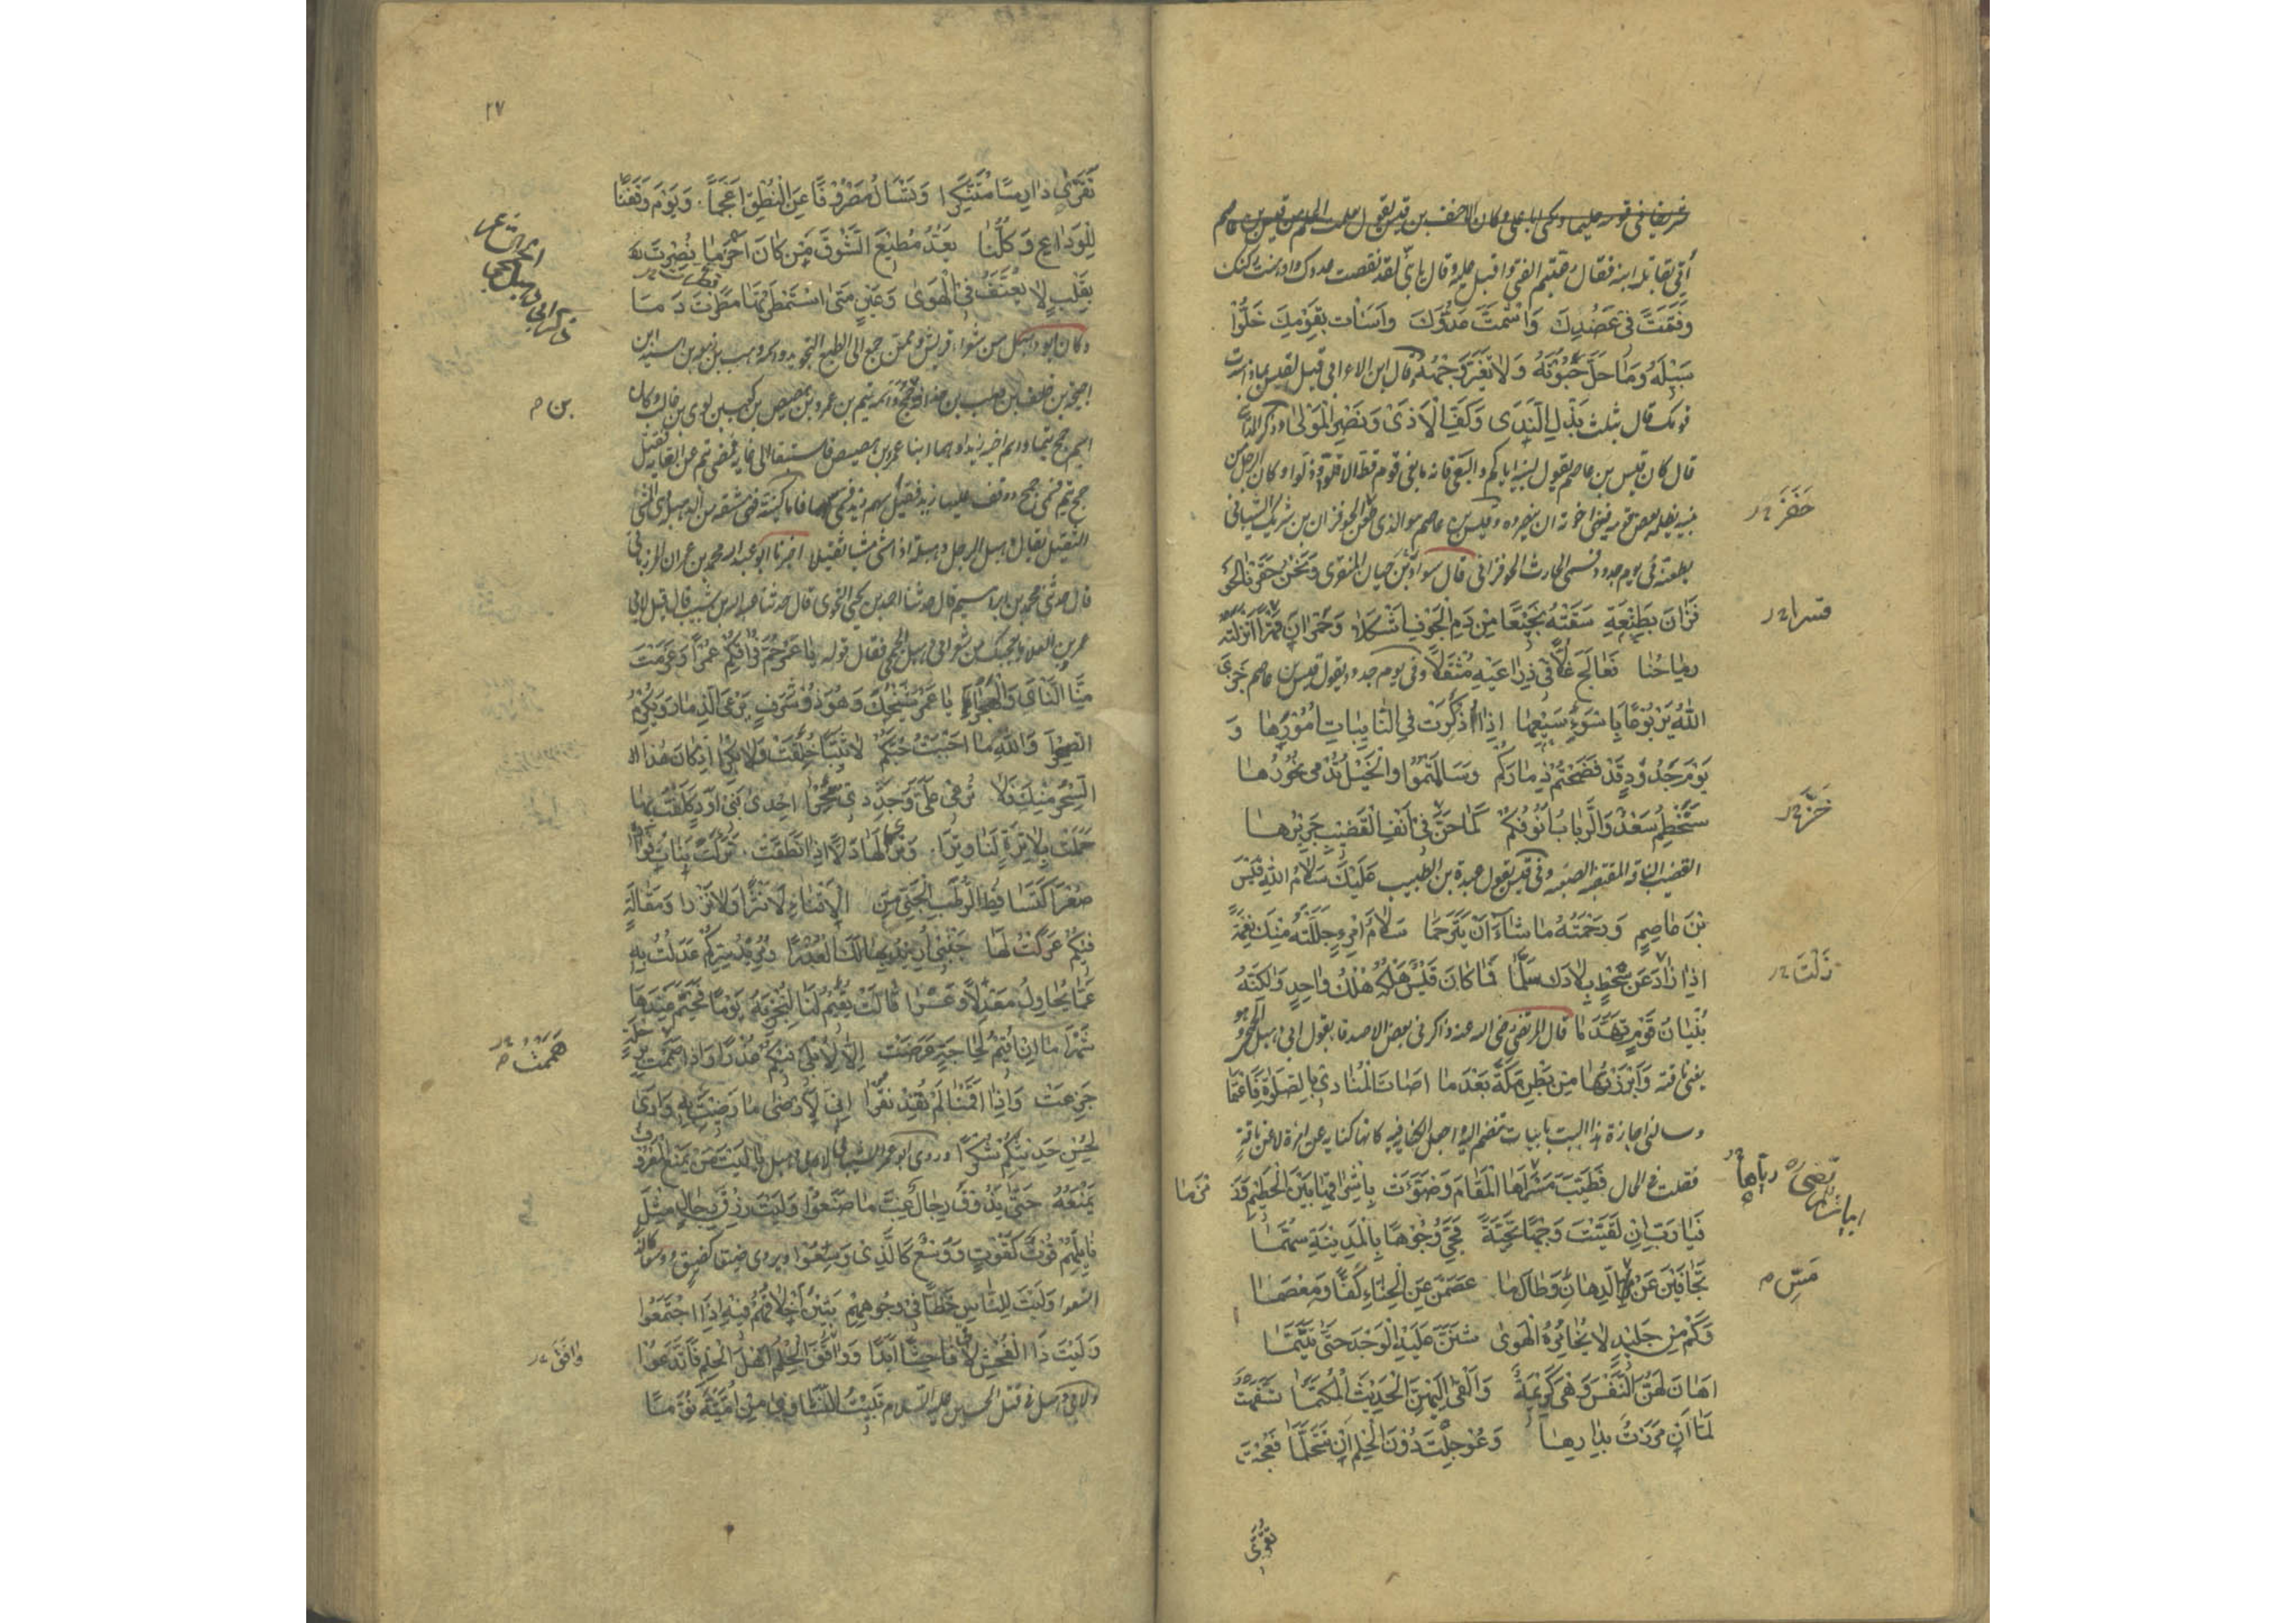 شريفا في قومه حليما ويكنى ابا علي وكان الاحنف بن قيس يقول تعلمت الحلم من قيس بن عاصم
أُتي بقاتل ابنه فقال رعبتم الفتى واقبل عليه وقال يا بني لقد نقصت عددك واوهنت ركنك
وفَتَتَّ في عَضُدِكَ وَاشمَتَّ عَدُوَّكَ وَاَسَأتَ بقَومِكَ خَلُّوا
سَبيلَهُ وَمَا حَلَّ حَبْوَتَهُ وَلا تَغَيَّرَ وَجْهُهُ وقال ابن الاعرابي قيل لقيس بماذا سدت
قومك قال بثلث بَذْلِ النَّدَى وَكَفِّ الْاَذَى وَنَصْرِ الْمَوْلىٰ وذكر المدائني
قال كان قيس بن عاصم يقول لبنيه اياكم والبغي فانه ما بغى قوم قط الا قلوا وذلوا وكان الرجل من
بنيه يظلمه بعض قومه فينهى اخوته ان ينصروه وقيس بن عاصم هو الذي حفز الحوفزان بن شريك الشيباني
بطعنة في يوم جدود فسمي الحارث الحوفزان قال سوار بن حيان المنقري وَنَحْنُ حَفَزْنَا الحَوْ
فَزَانَ بِطَعْنَةٍ سَقَتْهُ نَجِيْعًا مِنْ دَمِ الْجَوْفِ اَشْكَلَا وَحُمْرَانَ قَسْرًا اَنْزَلَتْهُ
رِمَاحُنَا فَعَالَجَ غُلًّا فِي ذِرَاعَيْهِ مُثْقَلًا وفي يوم جدود يقول قيس بن عاصم جَزَى
اللهُ يَرْبُوعًا بِاَسْوَءِ سَعْيِهَا اِذَا ذُكِرَتْ فِي النَّايِبَاتِ اُمُوْرُهَا وَ
يَوْمَ جَدُوْدٍ قَدْ فَضَحْتُمْ ذِمَارَكُمْ وَسَالَمْتُمُوْا وَالْخَيْلُ تُدْمى نُحُوْرُهَا
سَتَخْطِمُ سَعْدٌ وَالرِّبَابُ اُنُوفَكُمْ كَمَا حَزَّ فِيْ اَنْفِ الْقَضِيْبِ جَرِيْرُهَا
القضيب الناقة المقتضبة الصعبة وفي قيس يقول عبدة بن الطبيب عَلَيْكَ سَلَامُ اللهِ قَيْسَ
بْنَ عَاصِمٍ وَرَحْمَتُهُ مَا شَاءَ اَنْ يَتَرَحَّمَا سَلَامُ امْرِءٍ جَلَّلْتَهُ مِنْكَ نِعْمَةً
اِذَا زَارَ عَنْ شَحْطٍ بِلَادَكَ سَلَّمَا فَمَا كَانَ قَيْسٌ هُلْكُهُ هُلْكُ وَاحِدٍ وَلَكِنَّهُ
بُنْيَانُ قَوْمٍ تَهَدَّمَا قال المرتضى رضي الله عنه ذاكرني بعض الاصدقا بقول ابي دهبل الجمحي وهو
يعني ناقته وَاَبْرَزْتُهَا مِنْ بَطْنِ مَكَّةَ بَعْدَ مَا اَصَاتَ الْمُنَادِيْ بِالصَّلٰوةِ فَاَعْتَمَا
وسالني اجازة هذا البيت بابيات تنضم اليه واجعل الكناية فيه كانها كناية عن امرأة لا عن ناقة
فقلت في الحال فَطَيَّبَ مَسْرَاهَا الْمَقَامَ وَضَوَّءَتْ بِاِشْرَاقِهَا بَيْنَ الْحَطِيْمِ وَزَ مْزَمَا
فَيَا رَبِّ اِنْ لَقَّيْتَ وَجْهًا تَحِيَّةً فَحَيِّ وُجُوْهًا بِالْمَدِيْنَةِ سُهَّمَا
تَجَافَيْنَ عَنْ مَسِّ الدِّهَانِ وَطَالَمَا عَصَمْنَ عَنِ الْحِنَّاءِ كَفًّا وَمِعْصَمَا
وَكَمْ مِنْ جَلِيْدٍ لَا يُخَامِرُهُ الْهَوىٰ شَنَنَّ عَلَيْهِ الْوَجْدَ حَتّٰى تَتَيَّمَا
اَهَانَ لَهُنَّ النَّفْسَ وَهْيَ كَرِيْمَةٌ وَاَلْقَى اِلَيْهِنَّ الْحَدِيْثَ الْمُكَتَّمَا تَسَفَّهْتُ
لَمَّا اَنْ مَرَرْتُ بِدَارِهَا وَعُوْجِلْتُ دُوْنَ الْحِلْمِ اَنْ نَتَحَلَّمَا فَعُجْتُ
حَفَزَ
قسرا
حَزَّ
مَسِّ م
تقرّى
٢٧
تَقَرَّىٰ دَارِسًا مُتَنَكِّرًا وَتَسْاَلُ مَصْرُوْفًا عَنِ النُّطْقِ اَعْجَمَا وَيَوْمَ وَقَفْنَا
لِلْوَدَاعِ وَكُلُّنَا يَعُدُّ مُطِيْعَ الشَّوْقِ مَنْ كَانَ اَحْزَمَا نُصِرْتُ
بِقَلْبٍ لَا يُعَنَّفُ فِي الْهَوىٰ وَعَيْنٍ مَتىٰ اسْتَمْطَرْتُهَا مَطَرَتْ دَمَا
وكان ابو دهبل من شعراء قريش وممن جمع الى الطبع التجويد واسمه وهب بن زمعة بن اسيد بن
احيحة بن خلف بن وهب بن حذافة بن جمح واسمه تيم بن عمرو بن هصيص بن كعب بن لوي بن غالب وكان
اسم جمح تيما واسم اخيه زيدا وهما ابنا عمرو بن هصيص فاستبقا الى غاية فمضى تيم عن الغاية فقيل
جمح تيم فسمي جمح ووقف عليها زيد فقيل سهم زيد فسمي سهما فاما كنيته فهي مشتقة من الدهبلة وهي المشي
الثقيل يقال دهبل الرجل دهبلة اذا مشى مشيا ثقيلا اخبرنا ابو عبدالله محمد بن عمران المرزباني
قال حدثني محمد بن ابراهيم قال حدثنا احمد بن يحيى النحوي قال حدثنا عبدالله بن شبيب قال قيل لابي
عمرو بن العلا ما يعجبك من شعر ابي دهبل الجمحي فقال قوله يَا عَمْرُ حُمَّ فِرَاقُكُمْ عَمْرًا وَعَزَمْتِ
مِنَّا النَّاْيَ وَالْهَجْرَا يَا عَمْرُ شَيْخُكِ وَهُوَ ذُوْ شَرَفٍ يَرْعَى الذِّمَارَ وَيُكْرِمُ
الصِّهْرَا وَاللهِ مَا اَحْبَبْتُ حُبَّكُمْ لَا ثَيِّبًا خُلِقَتْ وَلَا بِكْرًا اِنْ كَانَ هٰذَا
السِّحْرُ مِنْكِ فَلَا تُرْعِي عَلَيَّ وَجَدِّدِيْ سِحْرًا اِحْدىٰ بَنِيْ اَوْدٍ كَلِفْتُ بِهَا
حَمَلَتْ بِلَا تِرَةٍ لَنَا وِتْرًا وَتَرىٰ لَهَا دَلًّا اِذَا نَطَقَتْ تَرَكَتْ بَنَاتِ فُؤَادِهِ
صُعْرًا كَتَسَاقُطِ الرُّطَبِ الْجَنِيِّ مِنَ الْاَقْنَاءِ لَا نَثْرًا وَلَا نَزْرًا وَمَقَالَةٍ
فِيْكُمْ عَرَكْتُ لَهَا جَنْبِيْ اُرِيْدُ بِهَا لَكِ الْعُذْرَا وَمُرِيْدِ سِرِّكُمْ عَدَلْتُ بِهِ
عَمَّا يُحَاوِلُ مَعْدِلًا وَعْرًا قَالَتْ يُقِيْمُ لَنَا لِنَجْزِيَهُ يَوْمًا فَخَيَّمَ عِنْدَهَا
شَهْرًا مَا اِنْ اُقِيْمُ لِحَاجَةٍ عَرَضَتْ اِلَّا لِاُبْلِيَ فِيْكُمُ عُذْرًا وَاِذَا هَمَمْتُ بِرِحْلَةٍ
جَزِعَتْ وَاِذَا اَقَمْنَا لَمْ نُفِدْ نَقْرًا اِنِّيْ لَاَرْضىٰ مَا رَضِيْتِ بِهِ وَاَرىٰ
لِحُسْنِ حَدِيْثِكُمْ شُكْرًا وروى ابو عمرو الشيباني لابي دهبل يَا لَيْتَ مَنْ يَمْنَعُ الْمَعْرُوْفَ
يَمْنَعُهُ حَتّٰى يَذُوْقَ رِجَالٌ غِبَّ مَا صَنَعُوْا وَلَيْتَ رِزْقَ رِجَالٍ مِثْلَ
نَايِلِهِمْ قُوْتٌ كَقُوْتٍ وَوُسْعٌ كَالَّذِيْ وَسِعُوْا ويروى ضيق كضيق ووسع كالذي
اتسعوا وَلَيْتَ لِلنَّاسِ خَطًّا فِيْ وُجُوْهِهِمْ تَبِيْنُ اَخْلَاقُهُمْ فِيْهِ اِذَا اجْتَمَعُوْا
وَلَيْتَ ذَا الْفُحْشِ لَاقىٰ فَاحِشًا اَبَدًا وَوَافَقَ الْحِلْمُ اَهْلَ الْحِلْمِ فَاتَّدَعُوْا
ولابي دهبل في قتل الحسين عليه السلام تَبِيْتُ النَّشَاوىٰ مِنْ اُمَيَّةَ نُوَّمًا
ذكر ابي دهبل الجمحي
بن م
هَمَمْتُ م
وافق